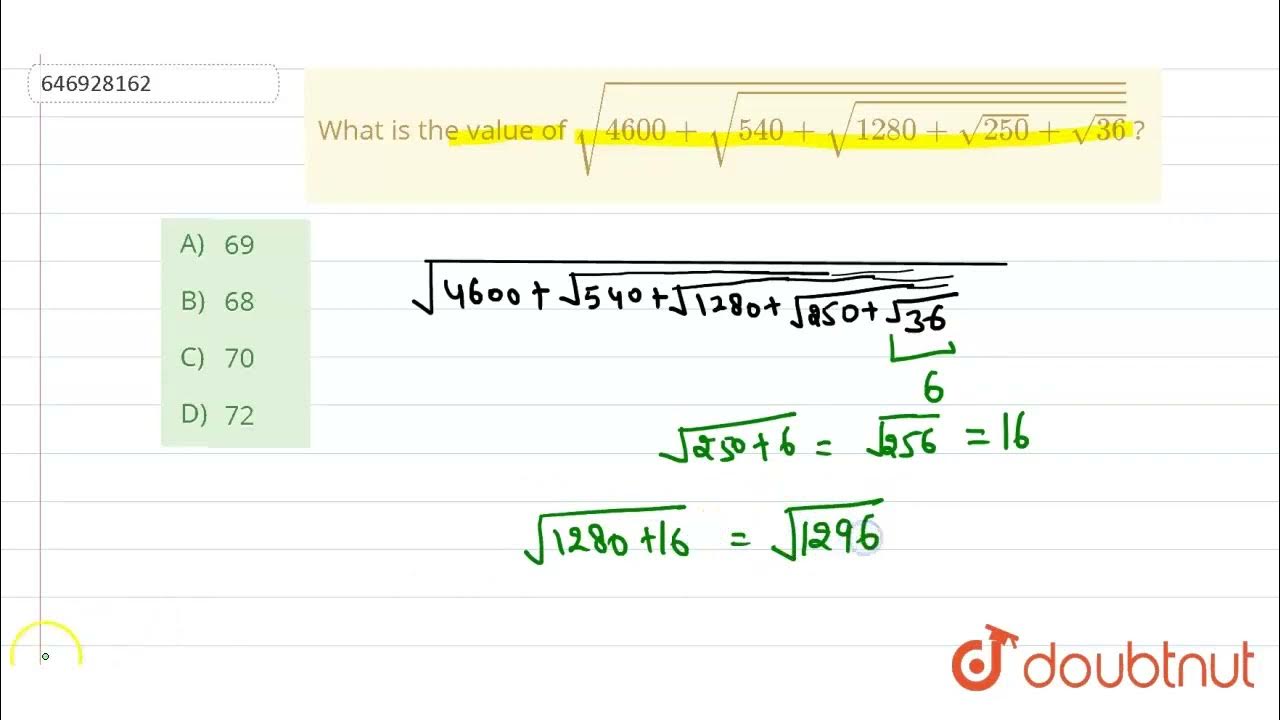 646928162
What is the value of √(4600 + √(540 + √(1280 + √250 + √36))) ?
A) 69
B) 68
C) 70
D) 72
√(4600 + √(540 + √(1280 + √(250 + √36))))
6
√(250 + 6) = √256 = 16
√(1280 + 16) = √1296
doubtnut